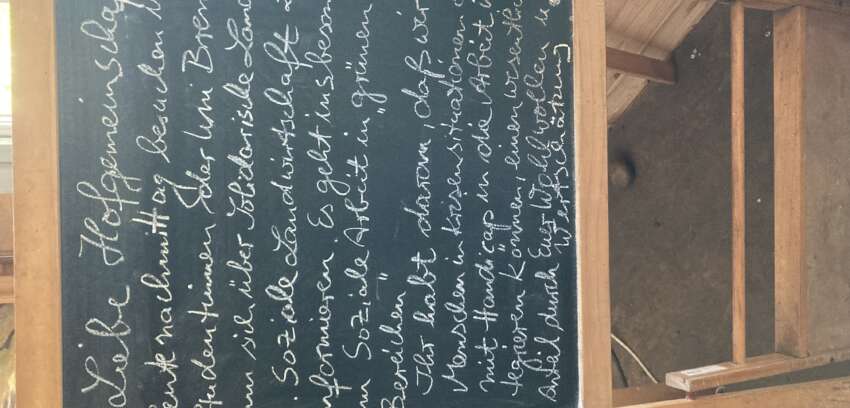 Liebe Hofgemeinscha
eute nachmittag besuchen
Studentinnen der Uni Brem
um sich über Solidarische Land
. Soziale Landwirtschaft
nformieren. Es geht insbeson
um Soziale Arbeit in "grünen
Bereichen"
Ihr habt daran, daß wir
Menschen in Krisensituationen
mit Handicap in die Arbeit i
tegrieren können, einen wesentlic
Anteil durch Euer Wohlwollen u
Wertschätzung